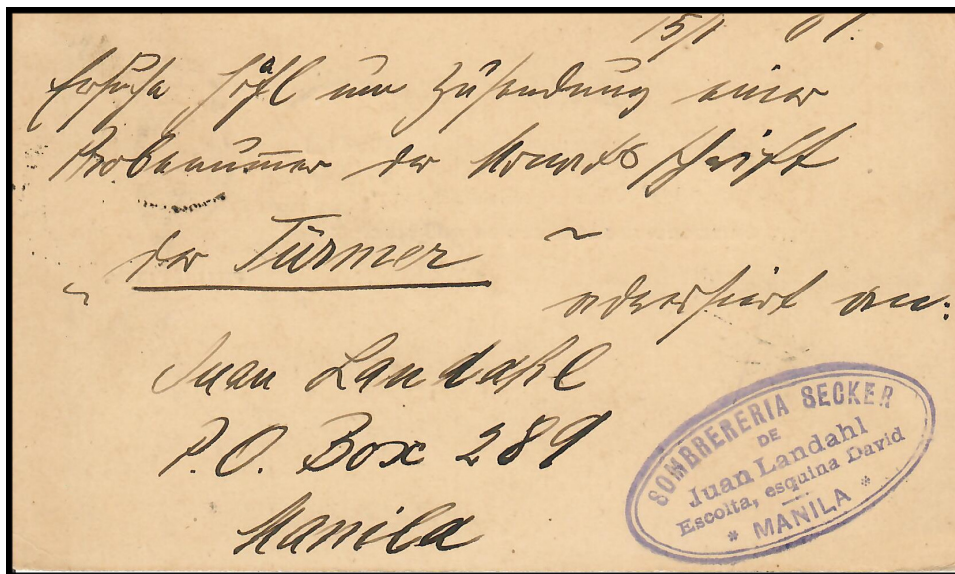 15/1 01.
Ersuche höfl um Zusendung einer
Probenummer der Monatsschrift
„der Türmer"
adressirt an:
Juan Landahl
P.O. Box 289
Manila
SOMBRERERIA SECKER
DE
Juan Landahl
Escolta, esquina David
* MANILA *